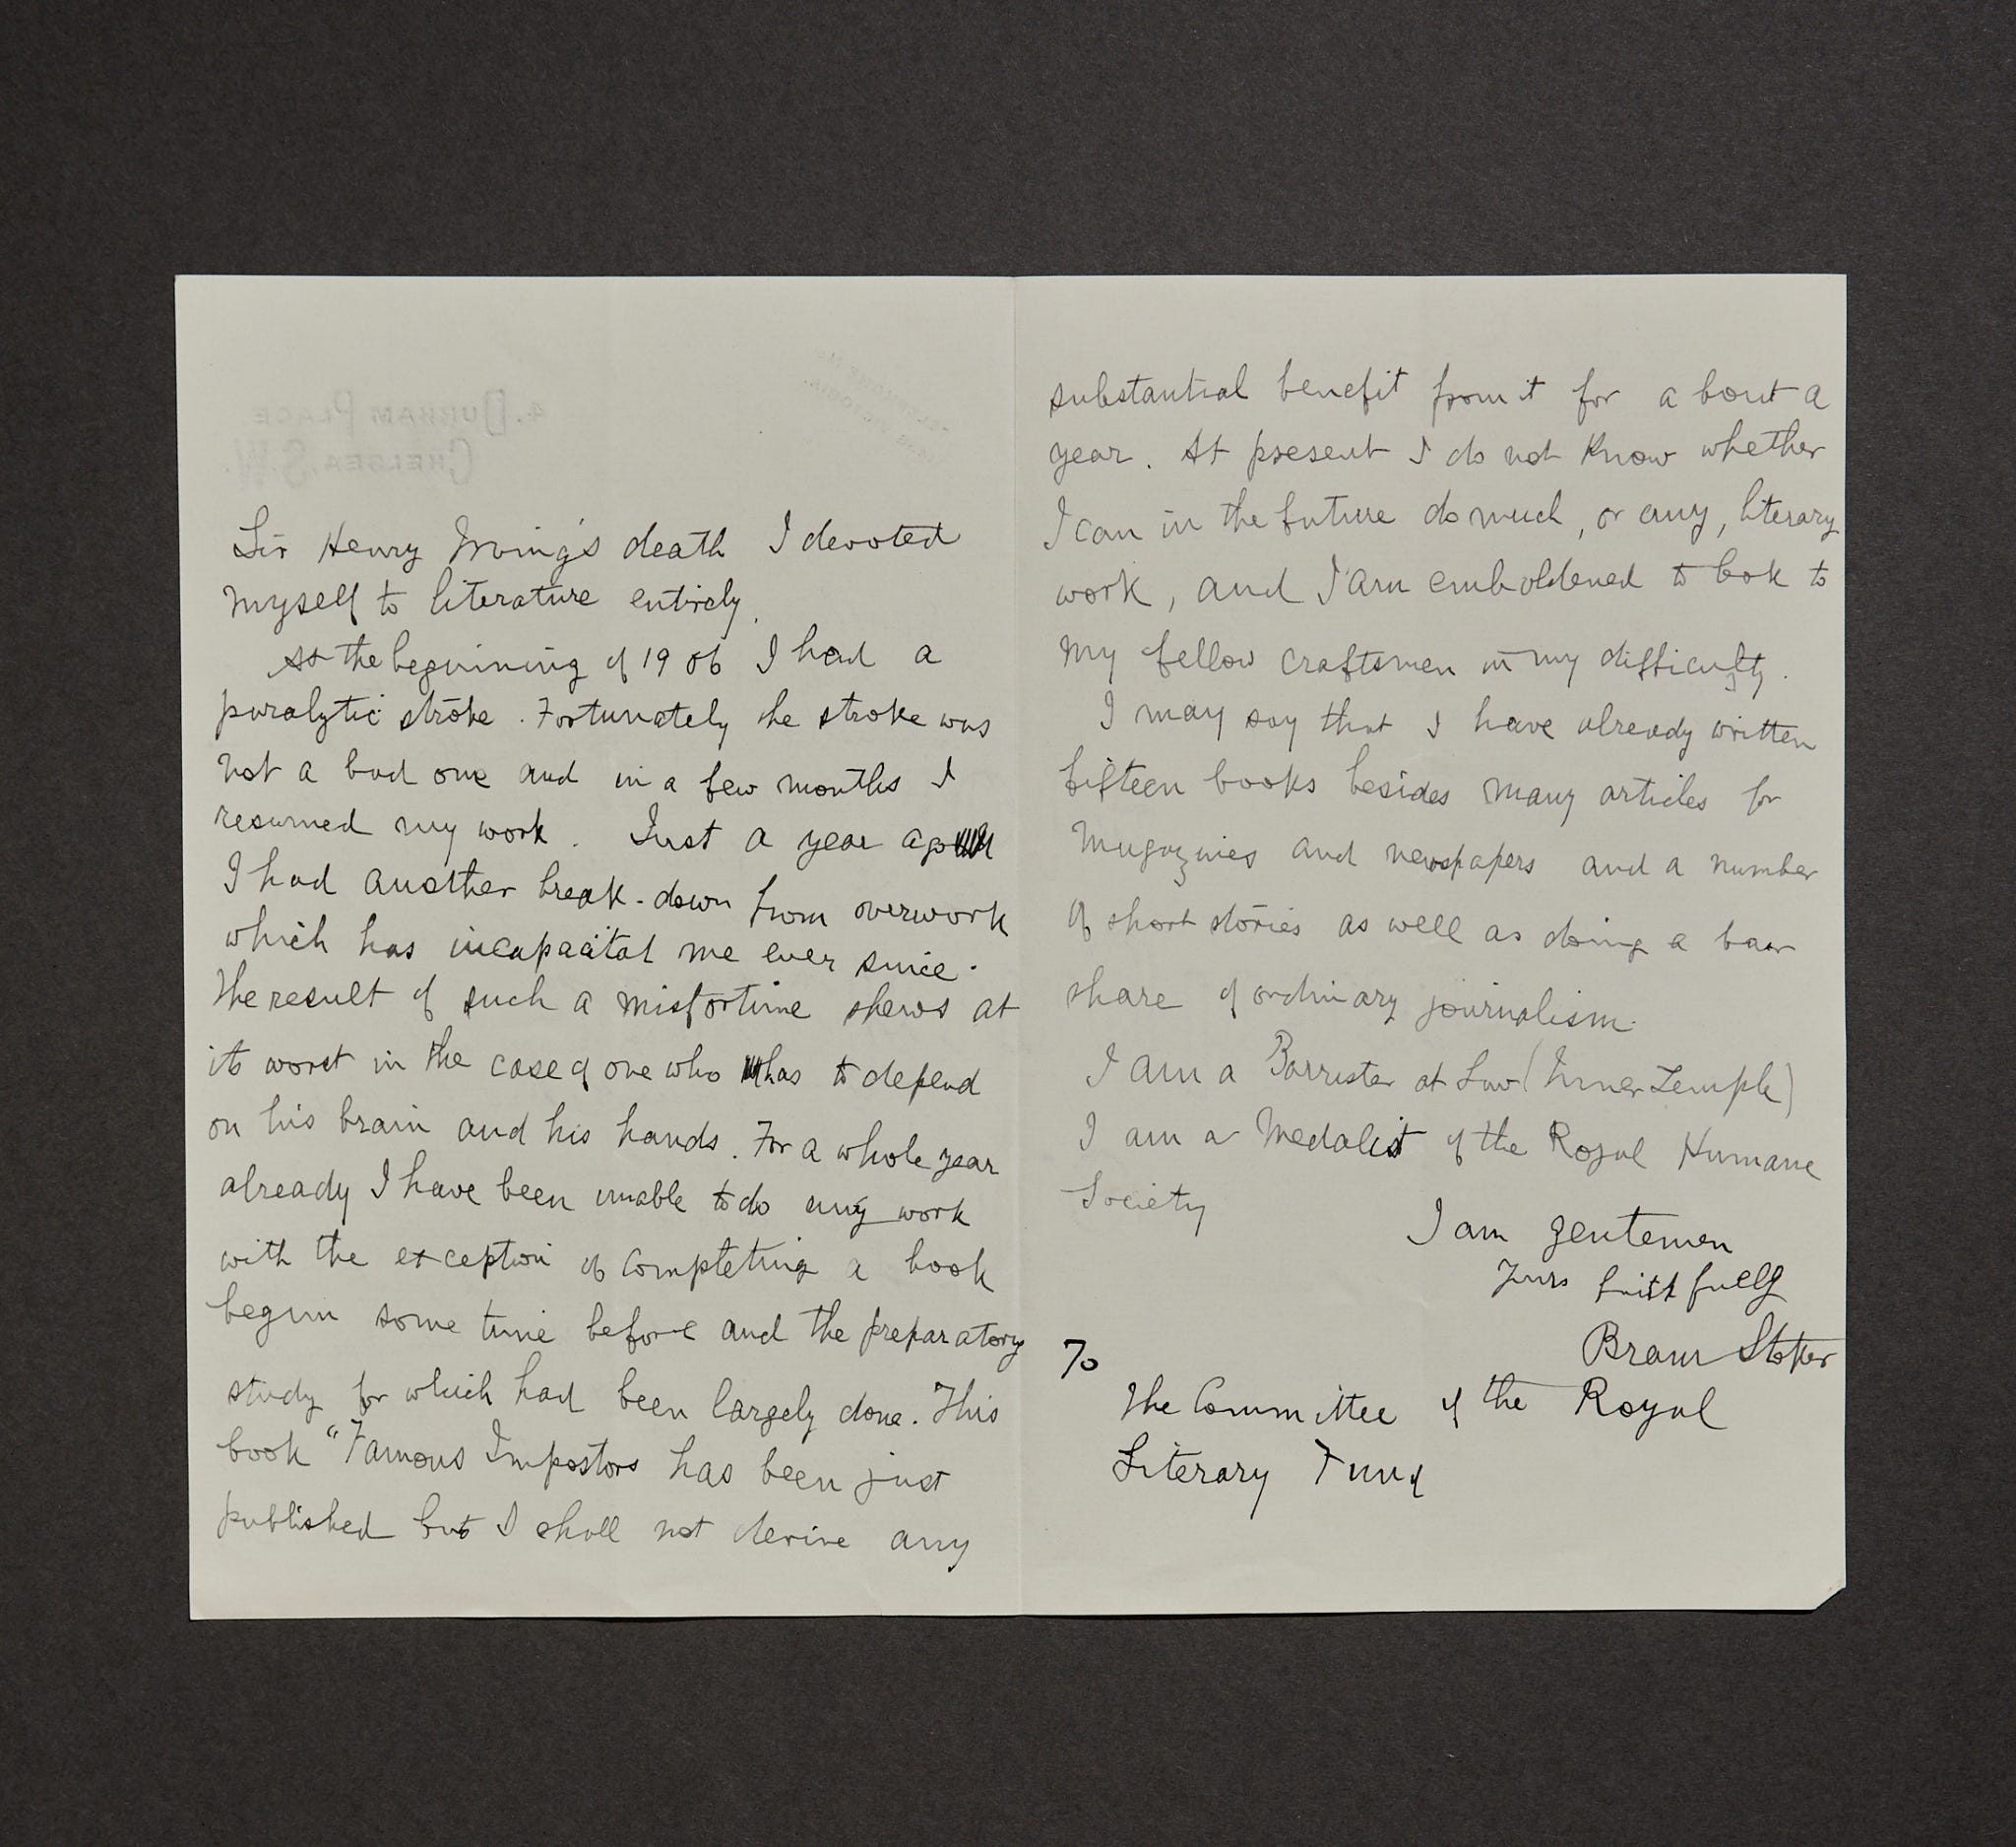 4. DURHAM PLACE
CHELSEA. S.W.
Sir Henry Irving's death I devoted
myself to literature entirely.
At the beginning of 1906 I had a
paralytic stroke. Fortunately the stroke was
not a bad one and in a few months I
resumed my work. Just a year ago
I had another break-down from overwork
which has incapacitat me ever since.
The result of such a misfortune shews at
its worst in the case of one who has to depend
on his brain and his hands. For a whole year
already I have been unable to do any work
with the exception of completing a book
begun some time before and the preparatory
study for which had been largely done. This
book "Famous Impostors has been just
published but I shall not derive any
substantial benefit from it for about a
year. At present I do not know whether
I can in the future do much, or any, literary
work, and I am emboldened to look to
my fellow craftsmen in my difficulty.
I may say that I have already written
fifteen books besides many articles for
magazines and newspapers and a number
of short stories as well as doing a
share of ordinary journalism.
I am a Barrister at Law (Inner Temple)
I am a Medalist of the Royal Humane
Society
I am gentemen
Yours faithfully
Bram Stoker
To
The Committee of the Royal
Literary Fund